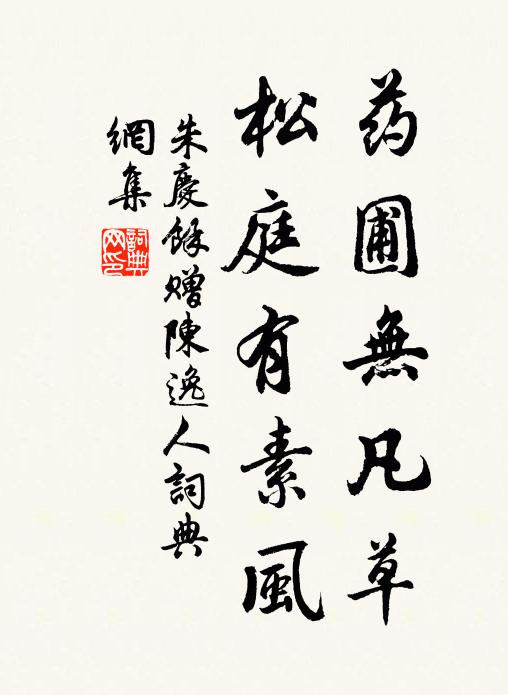 药圃無凡草
松庭有素風
朱慶餘贈陳逸人詞典
網集
詞典
网印